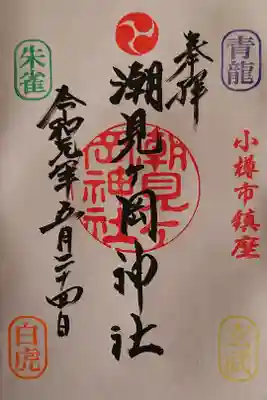 奉拝
青龍
小樽市鎮座
玄武
潮見ヶ岡神社
潮見ヶ岡神社
朱雀
令和元年五月二十四日
白虎